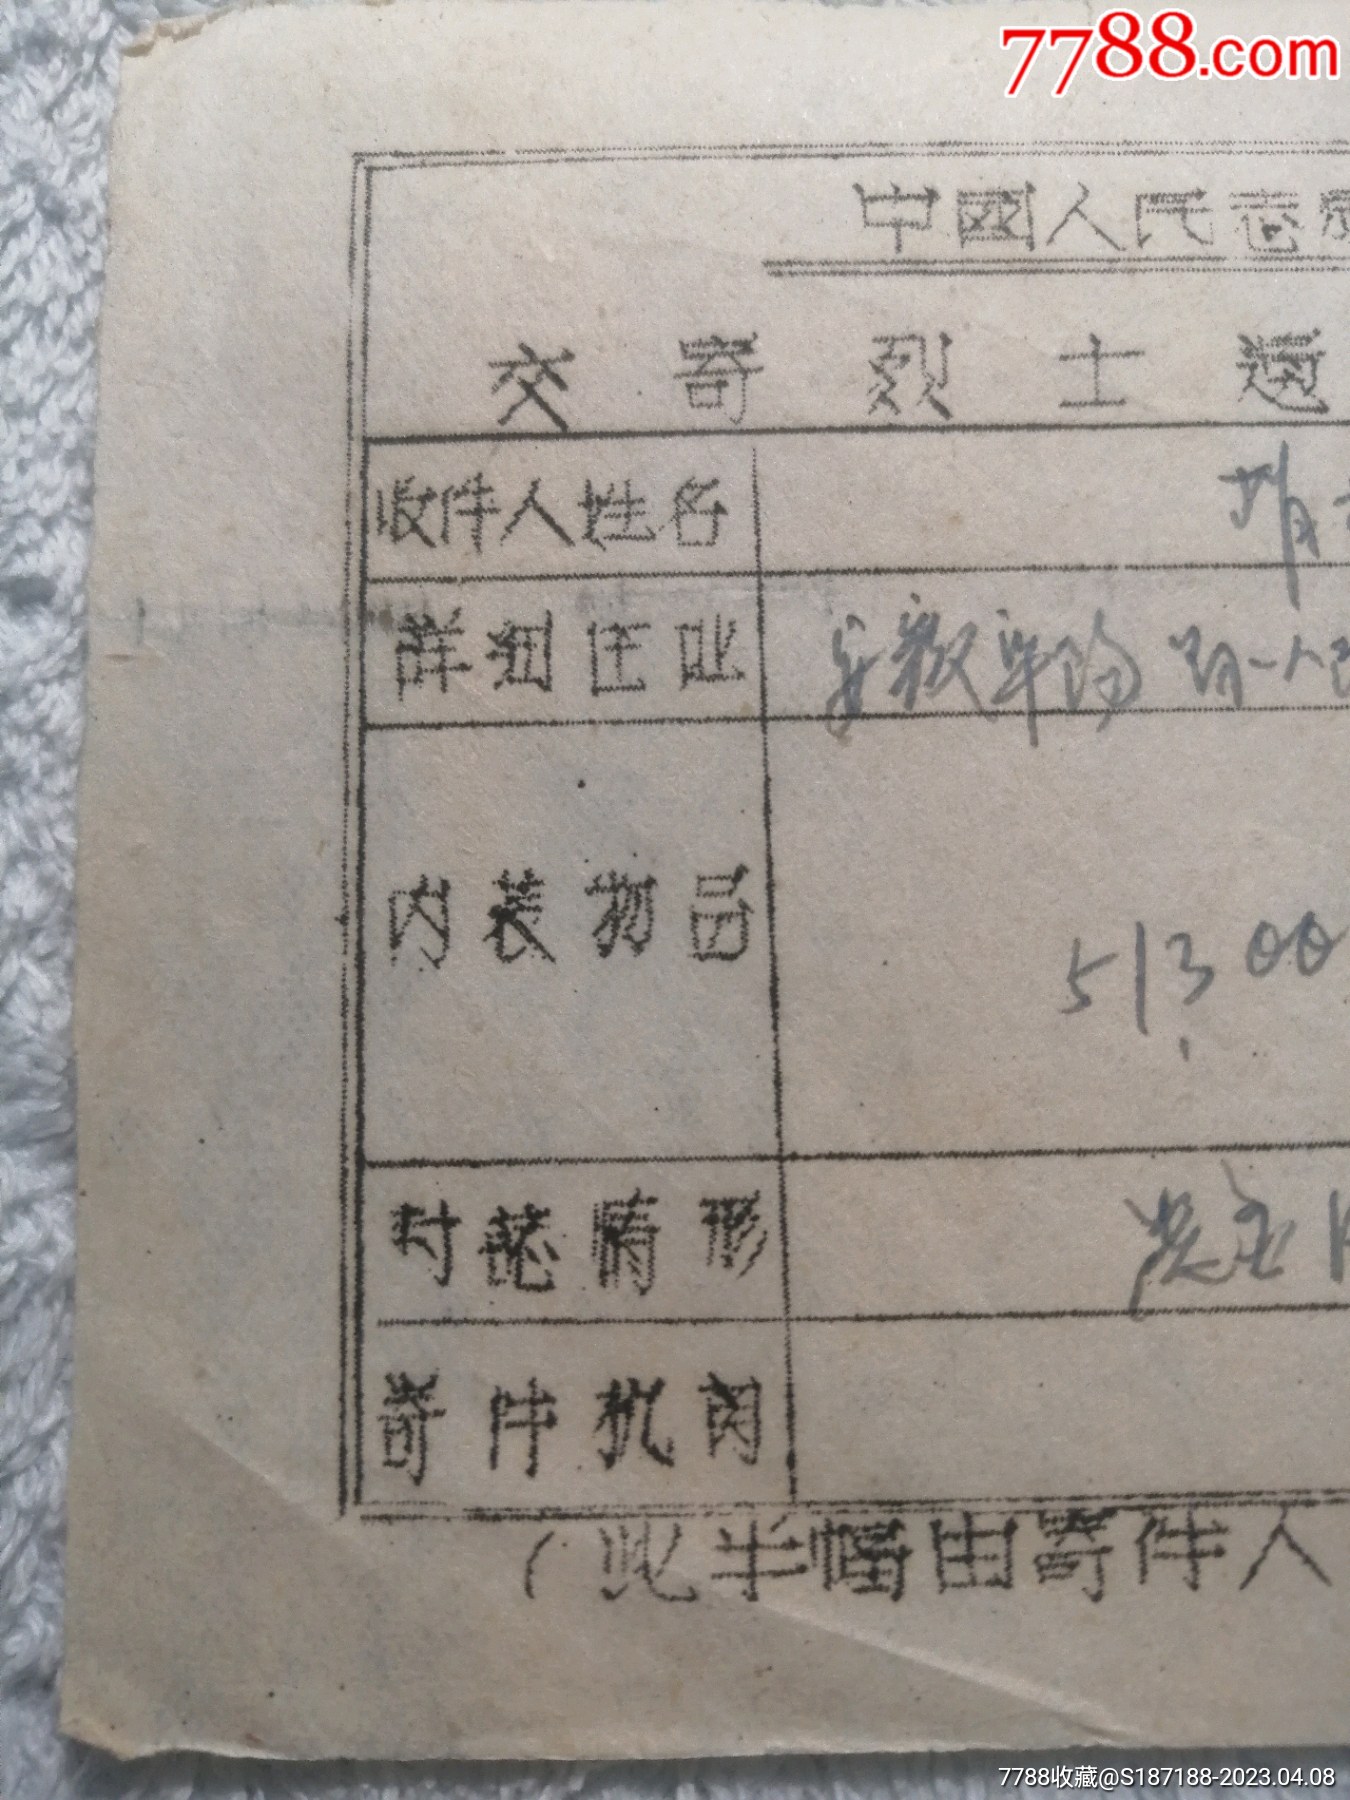 7788.com
中國人民志愿
交寄烈士遗
收件人姓名
详细住址 安徽阜阳
内装物品 51300
封裝情形
寄件机关
(此半幅由寄件人
7788收藏@S187188-2023.04.08